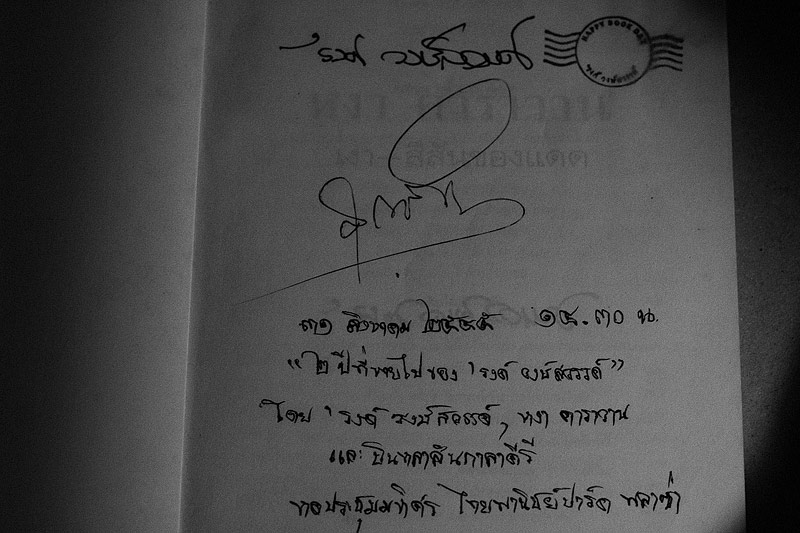 'รงค์ วงษ์สวรรค์
HAPPY BOOK DAY
'รงค์ วงษ์สวรรค์
หงา คาราวาน
เงา-สีสันของแดด
๓๑ สิงหาคม ๒๕๔๕ ๑๕.๓๐ น.
"๒ ปีที่หายไปของ 'รงค์ วงษ์สวรรค์"
โดย 'รงค์ วงษ์สวรรค์, หงา คาราวาน
และ บินหลาสันกาลาคีรี
หอประชุมมหิศร ไทยพาณิชย์ปาร์ค พลาซ่า